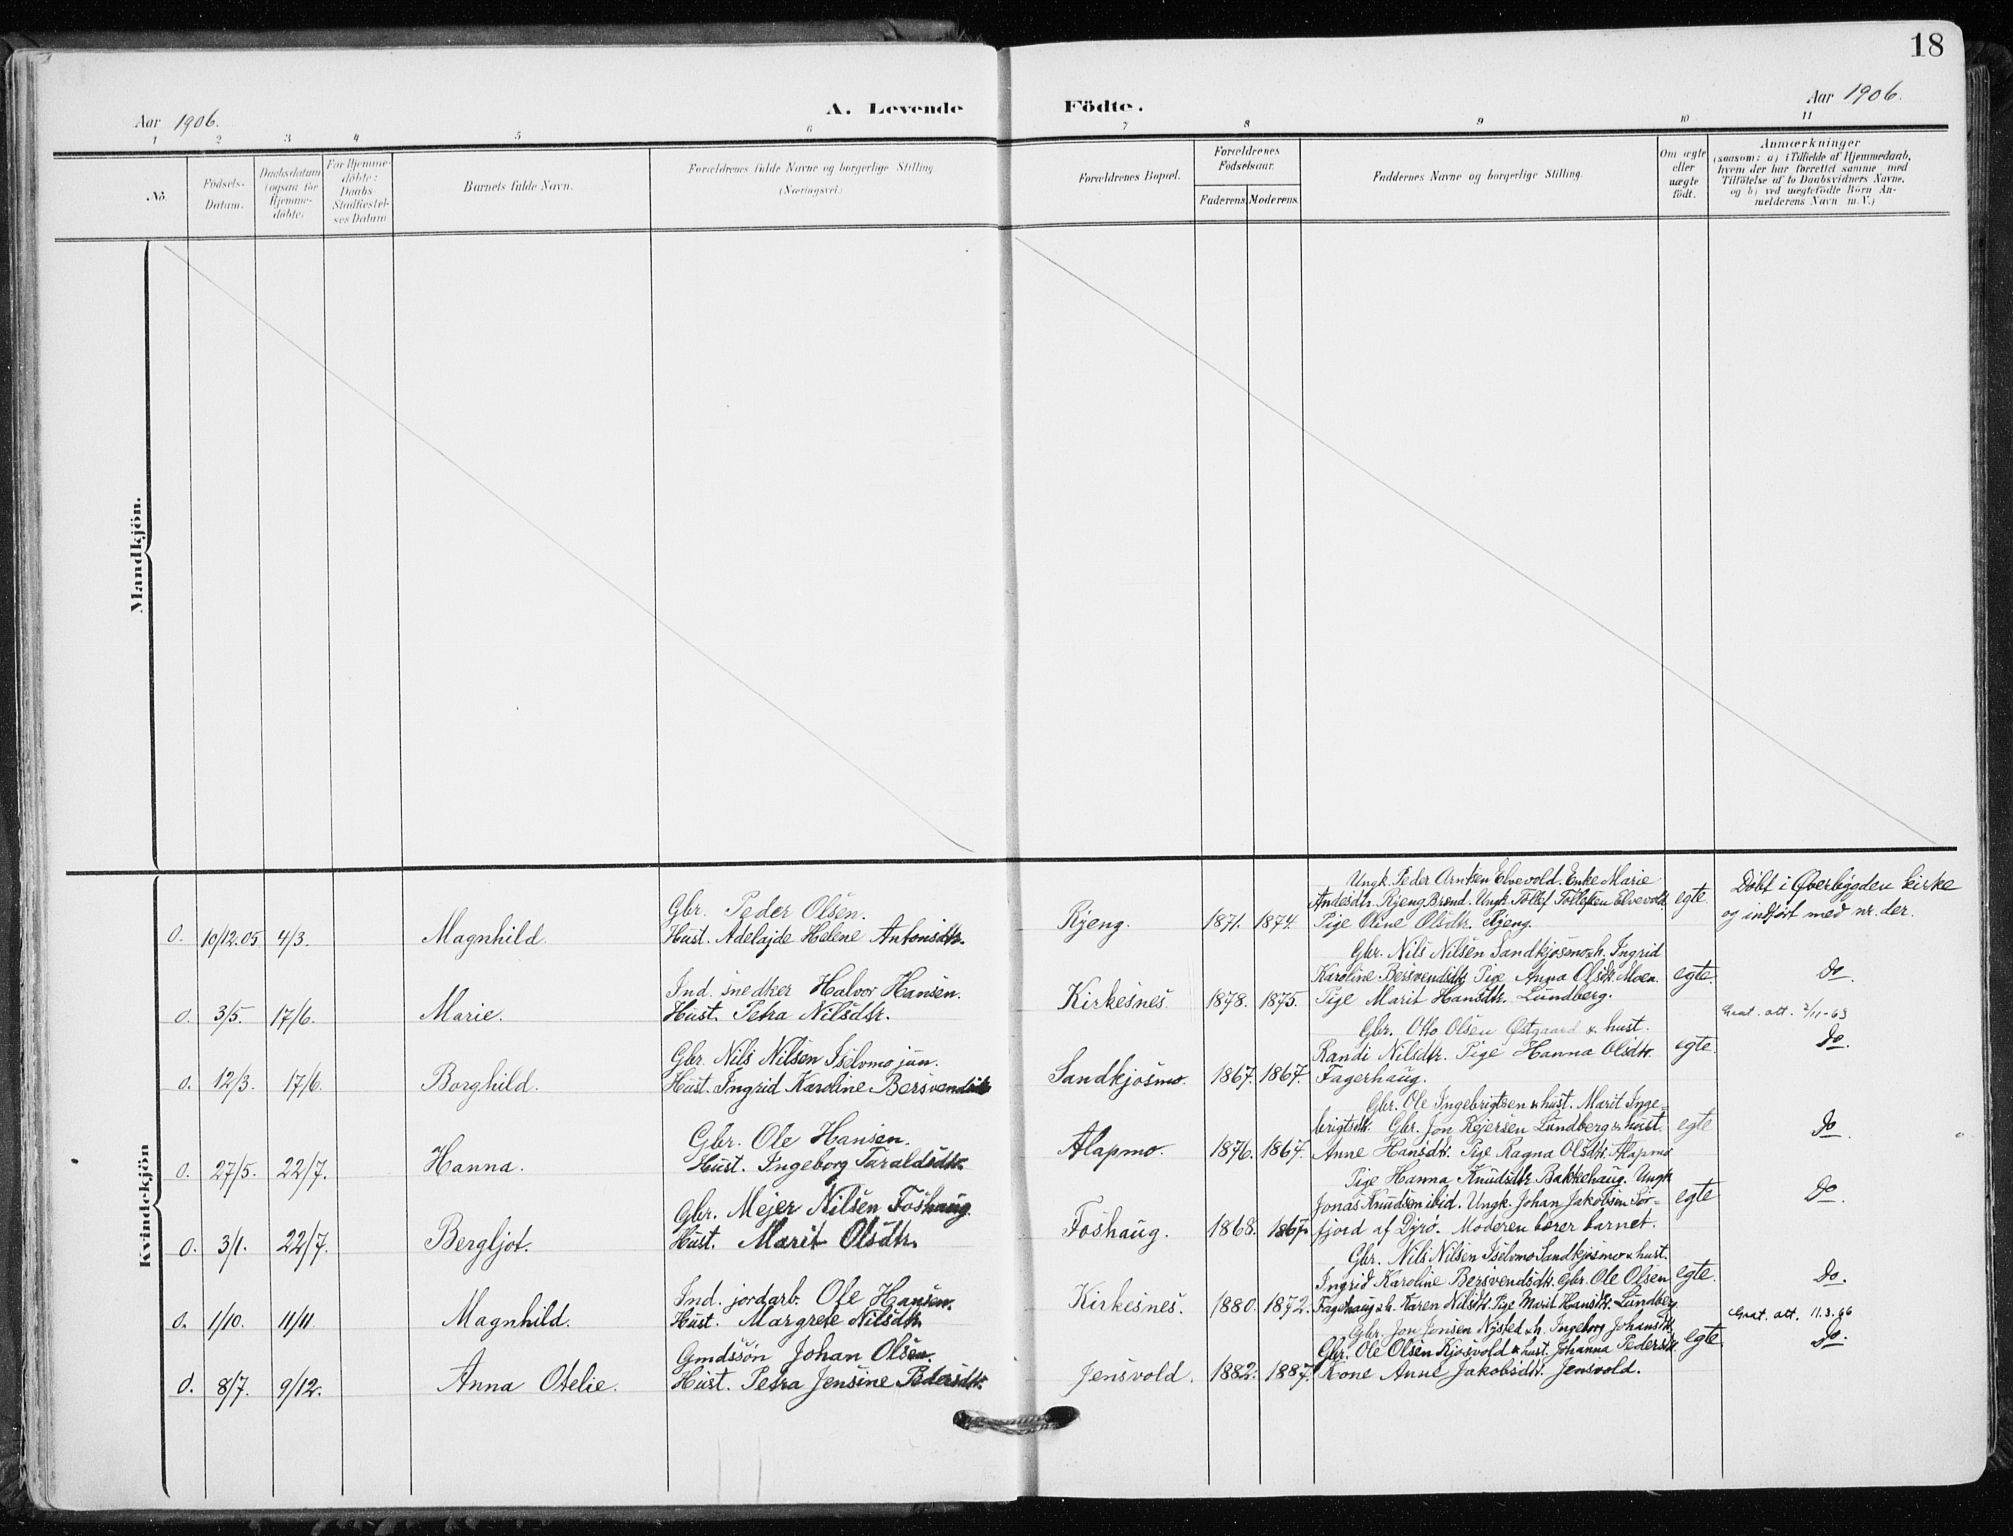 18
Aar 1906.
A. Levende Födte.
Aar 1906.
1 2 3 4 5 6 7 8 9 10 11
No.
Födsels-
Datum.
Daabsdatum
(ogsaa for
Hjemme-
döbte)
For Hjemme-
döbte:
Daabs-
Stadfæstel-
ses Datum
Barnets fulde Navn.
Forældrenes fulde Navne og borgerlige Stilling
(Næringsvei)
Forældrenes Bopæl.
Forældrenes
Födselsaar.
Faderens. Moderens.
Faddernes Navne og borgerlige Stilling.
Om ægte
eller
uægte
födt.
Anmærkninger
(saasom: a) i Tilfælde af Hjemmedaab,
hvem der har forrettet samme med
Tilföielse af to Daabsvidners Navne,
og b) ved uægtefödte Börn An-
melderens Navn m.V.)
Mandkjön.
Kvindekjön
Ungk. Peder Arntsen Elvevold. Enke Marie
Gbr. Peder Olsen. Andesdtr. Rjeng Brend. Ungk. Tollef Tollefsen Elvevold. egte. Döbt i Överbygden kirke
0. 10/12.05 4/3. Magnhild. Hust. Adelajde Helene Antonsdtr. Rjeng. 1871. 1874. Pige Oline Olsdtr. Rjeng. og indfört med nr. der.
Gbr. Nils Nilsen Sandkjosmo & h. Ingrid
Ind. snedker Halvor Hansen. Karoline Bersvendsdtr. Pige Anna Olsdtr. Moen. egte. Do.
0. 3/5. 17/6. Marie. Hust. Petra Nilsdtr. Kirkesnes 1878. 1875. Pige Marit Hansdtr. Lundberg.
Grat. att. 2/11-63
Gbr. Otto Olsen Østgaard & hust.
Gbr. Nils Nilsen Iselvmo jun. Randi Nilsdtr. Pige Hanna Olsdtr. egte. Do.
0. 12/3. 17/6. Borghild. Hust. Ingrid Karoline Bersvendsdtr. Sandkjosmo. 1867. 1867. Fagerhaug.
Gbr. Ole Ingebrigtsen & hust. Marit Inge-
Gbr. Ole Hansen. brigtsdtr. Gbr. Jon Rejersen Lundberg & hust. egte Do.
0. 27/5. 22/7. Hanna. Hust. Ingeborg Taraldsdtr. Alapmo. 1876. 1867. Anne Hansdtr. Pige Ragna Olsdtr. Alapmo
Pige Hanna Knudsdtr. Bakkehaug. Ungk.
Gbr. Mejer Nilsen Foshaug. Jonas Knudsen ibid. Ungk. Johan Jakobsen Sör- egte Do.
0. 3/1. 22/7. Bergljot. Hust. Marit Olsdtr. Foshaug. 1868. 1867. fjord af Dyrö. Moderen bærer barnet.
Gbr. Nils Nilsen Iselvmo Sandkjosmo & hust.
Ind. jordarb. Ole Hansen. Ingrid Karoline Bersvendsdtr. Gbr. Ole Olsen egte. Do.
0. 1/10. 11/11 Magnhild. Hust. Margrete Nilsdtr. Kirkesnes. 1880. 1872. Fagerhaug & h. Karen Nilsdtr. Pige Marit Hansdtr. Lundberg
Grat. att. 11.3.66
Gbr. Jon Jonsen Nysted & h. Ingeborg Johansdtr.
Gmdssön Johan Olsen. Gbr. Ole Olsen Kjosvold & hust. Johanna Pedersdtr. egte. Do.
0. 8/7. 9/12. Anna Otelie. Hust. Petra Jensine Pedersdtr. Jensvold. 1882. 1887. Kone Anne Jakobsdtr. Jensvold.